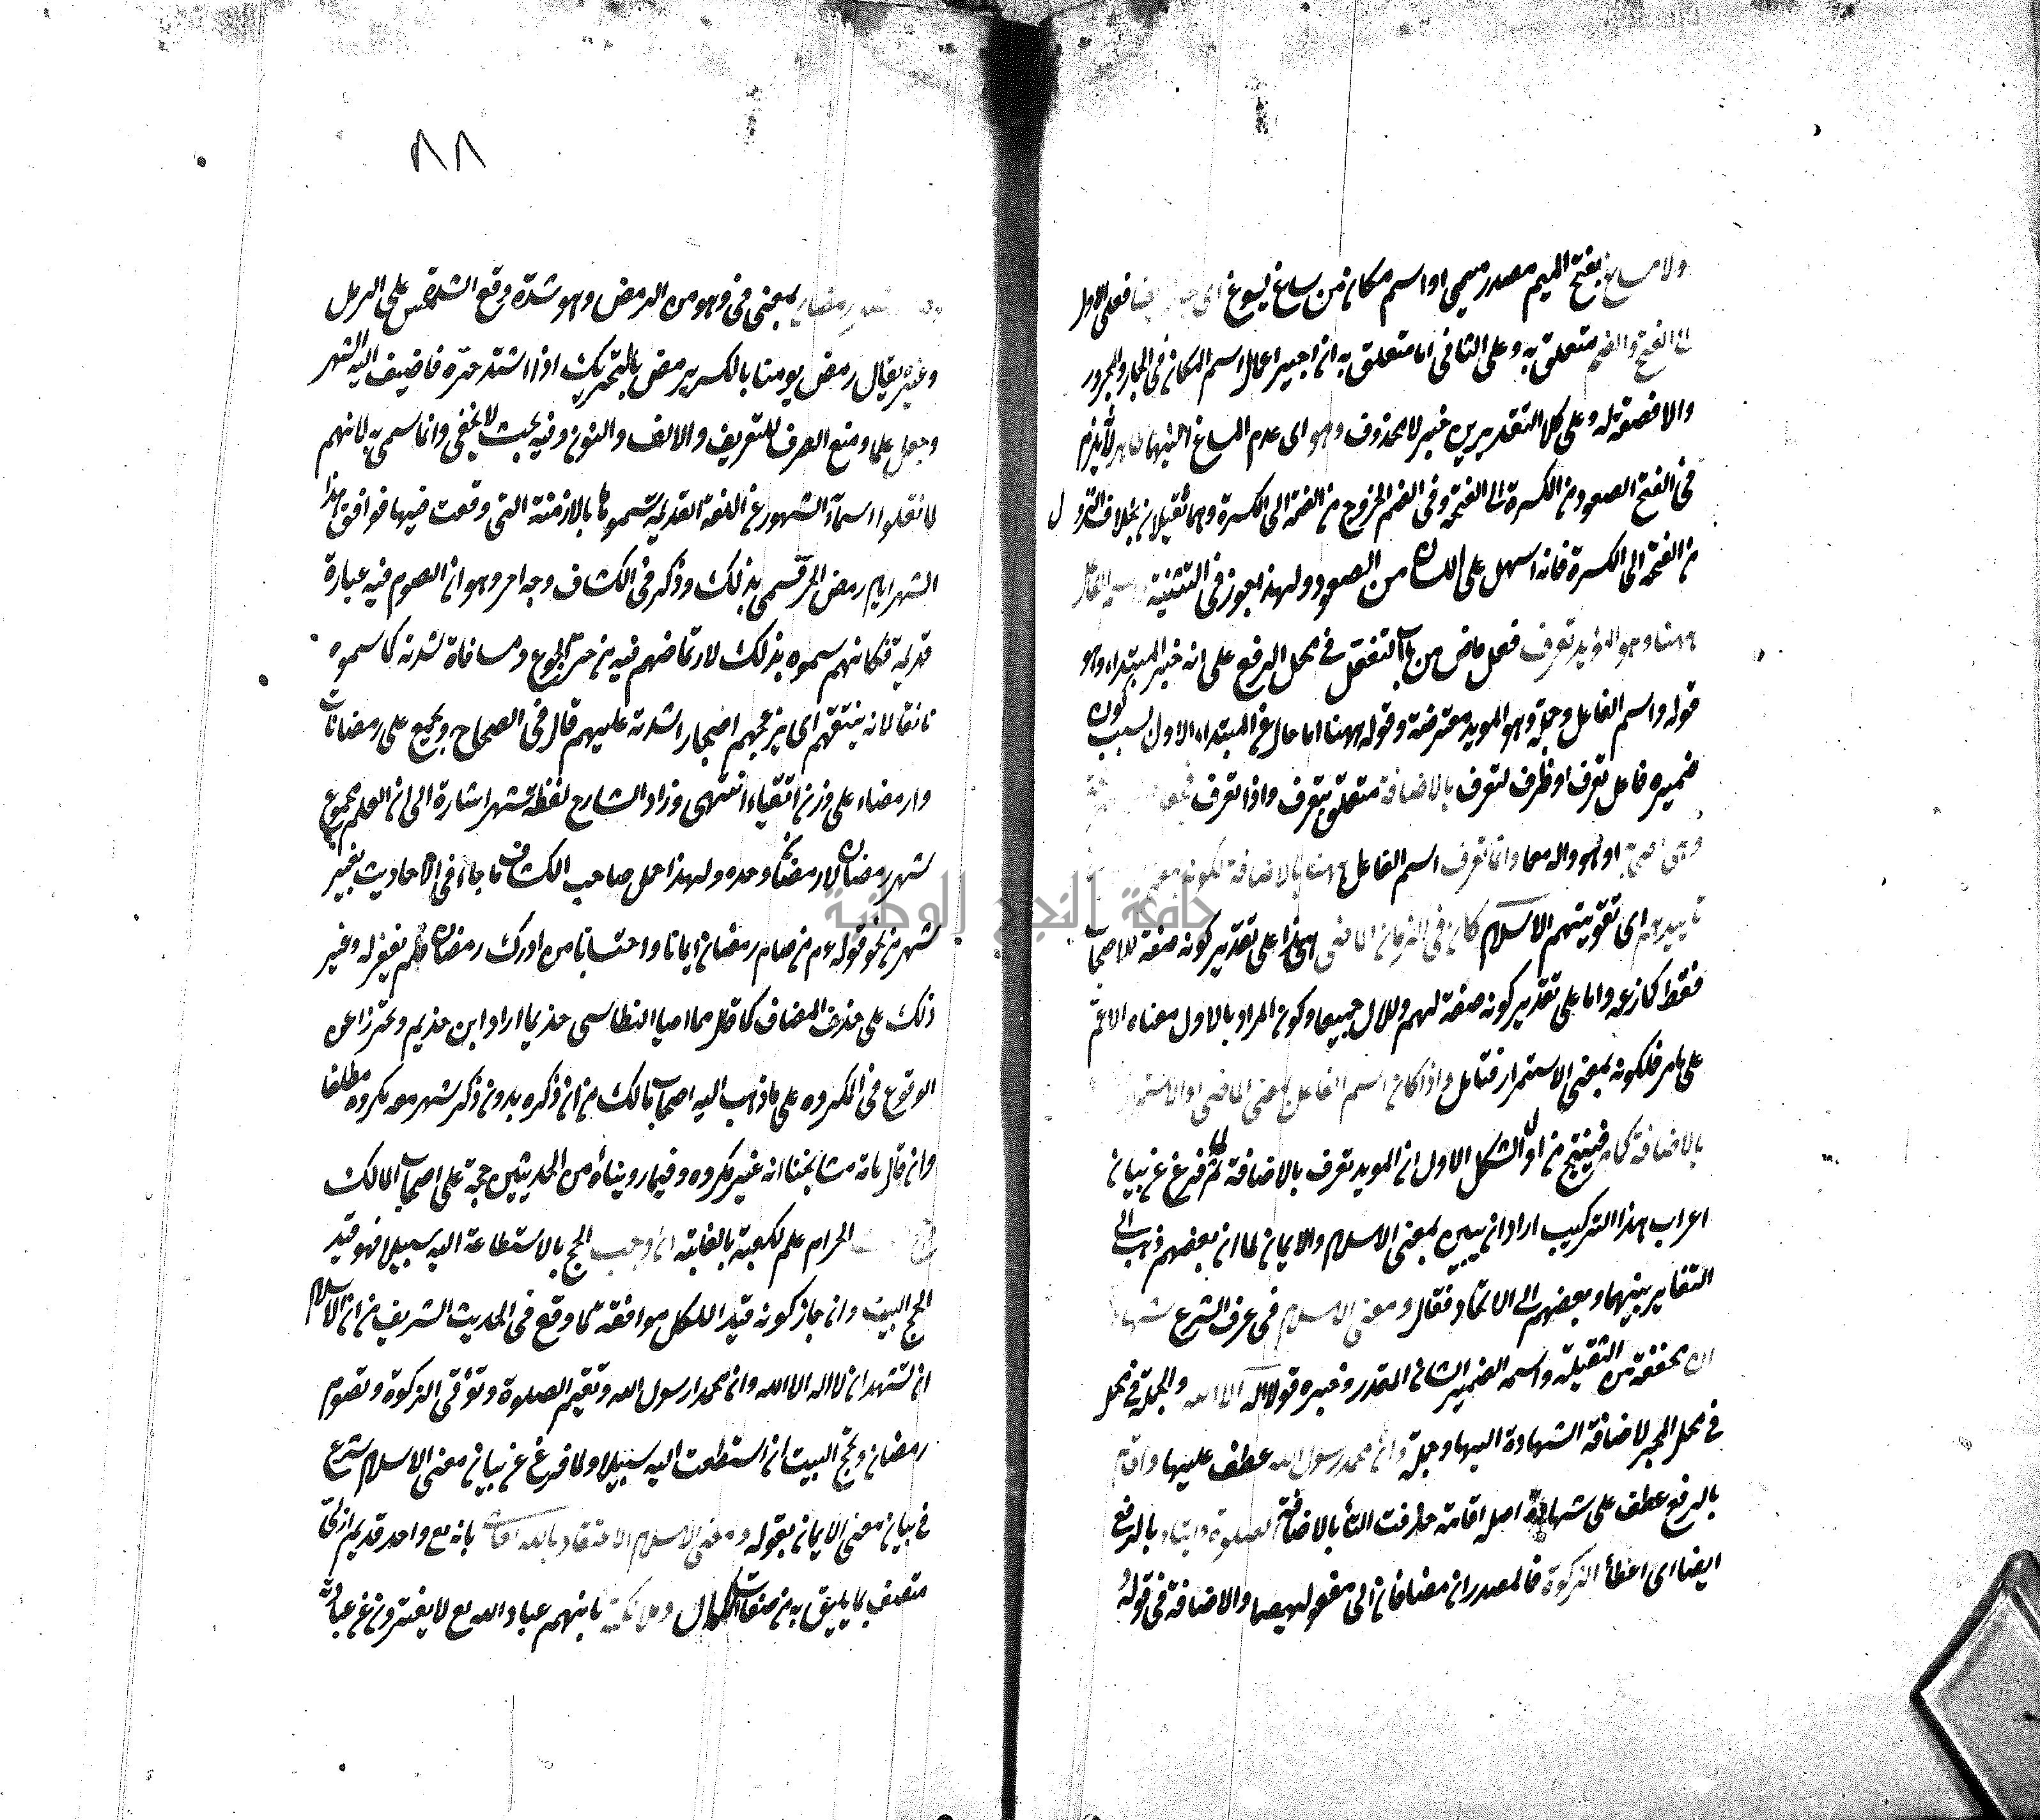 ولا مساغ بفتح الميم مصدر ميمى او اسم مكان من ساغ يسوغ اى فعلى الاول
الفتح والضم متعلق به وعلى الثانى اما متعلق به ان اجيز اعمال اسم المكان فى الجار والمجرور
والا فصفة له وعلى كلا التقديرين خبر لا محذوف وهو اى عدم المساغ
فى الفتح الصعود من الكسرة الى الفتحة وفى الضم الخروج من الضمة الى الكسرة وهما ثقيلان بخلاف النزول
من الفتحة الى الكسرة فانه اسهل على اللسان من الصعود ولهذا يجوز فى التثنية
ههنا وهو المؤيد تعرف فعل ماض من باب التفعل فى محل الرفع على انه خبر المبتداء وهو
قوله واسم الفاعل وجملة وهو المويد معترضة وقوله ههنا اما حال عن المبتداء الاول بسبب كون
ضميره فاعل تعرف او ظرف لتعرف بالاضافة متعلق بتعرف واذا تعرف
او هو واله معا وانما تعرف اسم الفاعل ههنا بالاضافة لكونه بمعنى
تاييدهم اى تقويتهم الاسلام كان فى الزمان الماضى هذا على تقدير كونه صفة للاصحاب
فقط كما زعمه واما على تقدير كونه صفة لهم وللال جميعا وكون المراد بالاول معناه الاعم
على ما مر فلكونه بمعنى الاستمرار فتامل واذا كان اسم الفاعل بمعنى الماضى او الاستمرار
بالاضافة كما مر فينتج من اول الشكل الاول ان المويد تعرف بالاضافة ثم لما فرغ عن بيان
اعراب هذا التركيب اراد ان يبين بمعنى الاسلام والايمان لما ان بعضهم ذهب الى
التغاير بينهما وبعضهم الى الاتحاد فقال ومعنى الاسلام فى عرف الشرع شهادة
ان مخففة من الثقيلة واسمه الضمير الشان المقدر وخبره قوله لا اله الا الله والجملة فى محل
فى محل الجر لاضافة الشهادة اليها وجملة وان محمد رسول الله عطف عليها واقام
بالرفع عطف على شهادة اصله اقامة حذفت التاء بالاضافة الصلوة وايتاء بالرفع
ايضا اى اعطاء الزكوة فالمصدران مضافان الى مفعوليهما والاضافة فى قوله
٨٨
رمضان بمعنى فى وهو من الرمض وهو شدة وقع الشمس على الرمل
وغيره يقال رمض يومنا بالكسر يرمض بالتحريك اذا اشتد حره فاضيف اليه الشهر
وجعل علما ومنع الصرف للتعريف والالف والنون وفيه بحث لا يخفى وانما سمى به لانهم
لما نقلوا اسماء الشهور عن اللغة القديمة سموها بالازمنة التى وقعت فيها فوافق هذا
الشهر ايام رمض الحر فسمى بذلك وذكر فى الكشاف وجه اخر وهو ان الصوم فيه عبادة
قديمة فكانهم سموه بذلك لارتماضهم فيه من حر الجوع ومساقاة شدته كما سموه
ناتقا لانه ينتقهم اى يزعجهم اضجارا لشدته عليهم قال فى الصحاح ويجمع على رمضانات
وارمضاء على وزن اتقياء انتهى وزاد الشارع لفظة شهر اشارة الى ان العلم مجموع
شهر رمضان لا رمضان وحده ولهذا حمل صاحب الكشاف ما جاء فى الاحاديث بغير
شهر من نحو قوله عم من صام رمضان ايمانا واحتسابا من ادرك رمضان فلم يغفر له وغير
ذلك على حذف المضاف كما قال بما اعيا النطاسى حذيما اراد ابن حذيم ومحترزا عن
الوقوع فى المكروه على ما ذهب اليه اصحاب مالك من ان ذكره بدون ذكر شهر معه مكروه مطلقا
وان قال عامة مشايخنا انه غير مكروه وفيما رويناه من الحديثين حجة على اصحاب المالك
الحرام علم لكعبة بالغلبة ان وجب الحج بالاستطاعة اليه سبيلا فهو قيد
الحج البيت وان جاز كونه قيد الكل موافقة لما وقع فى الحديث الشريف من ان الاسلام
ان تشهد ان لا اله الا الله وان محمدا رسول الله وتقيم الصلوة وتؤتى الزكوة وتصوم
رمضان وتحج البيت ان استطعت اليه سبيلا ولما فرغ عن بيان معنى الاسلام شرع
فى بيان معنى الايمان بقوله ومعنى الاسلام الاعتقاد بالله بانه تع واحد قديم ازلى
متصف بما يليق به من صفات الكمال وملائكته بانهم عباد الله تع لا يفترون عن عبادته
جامعة النجاح الوطنية